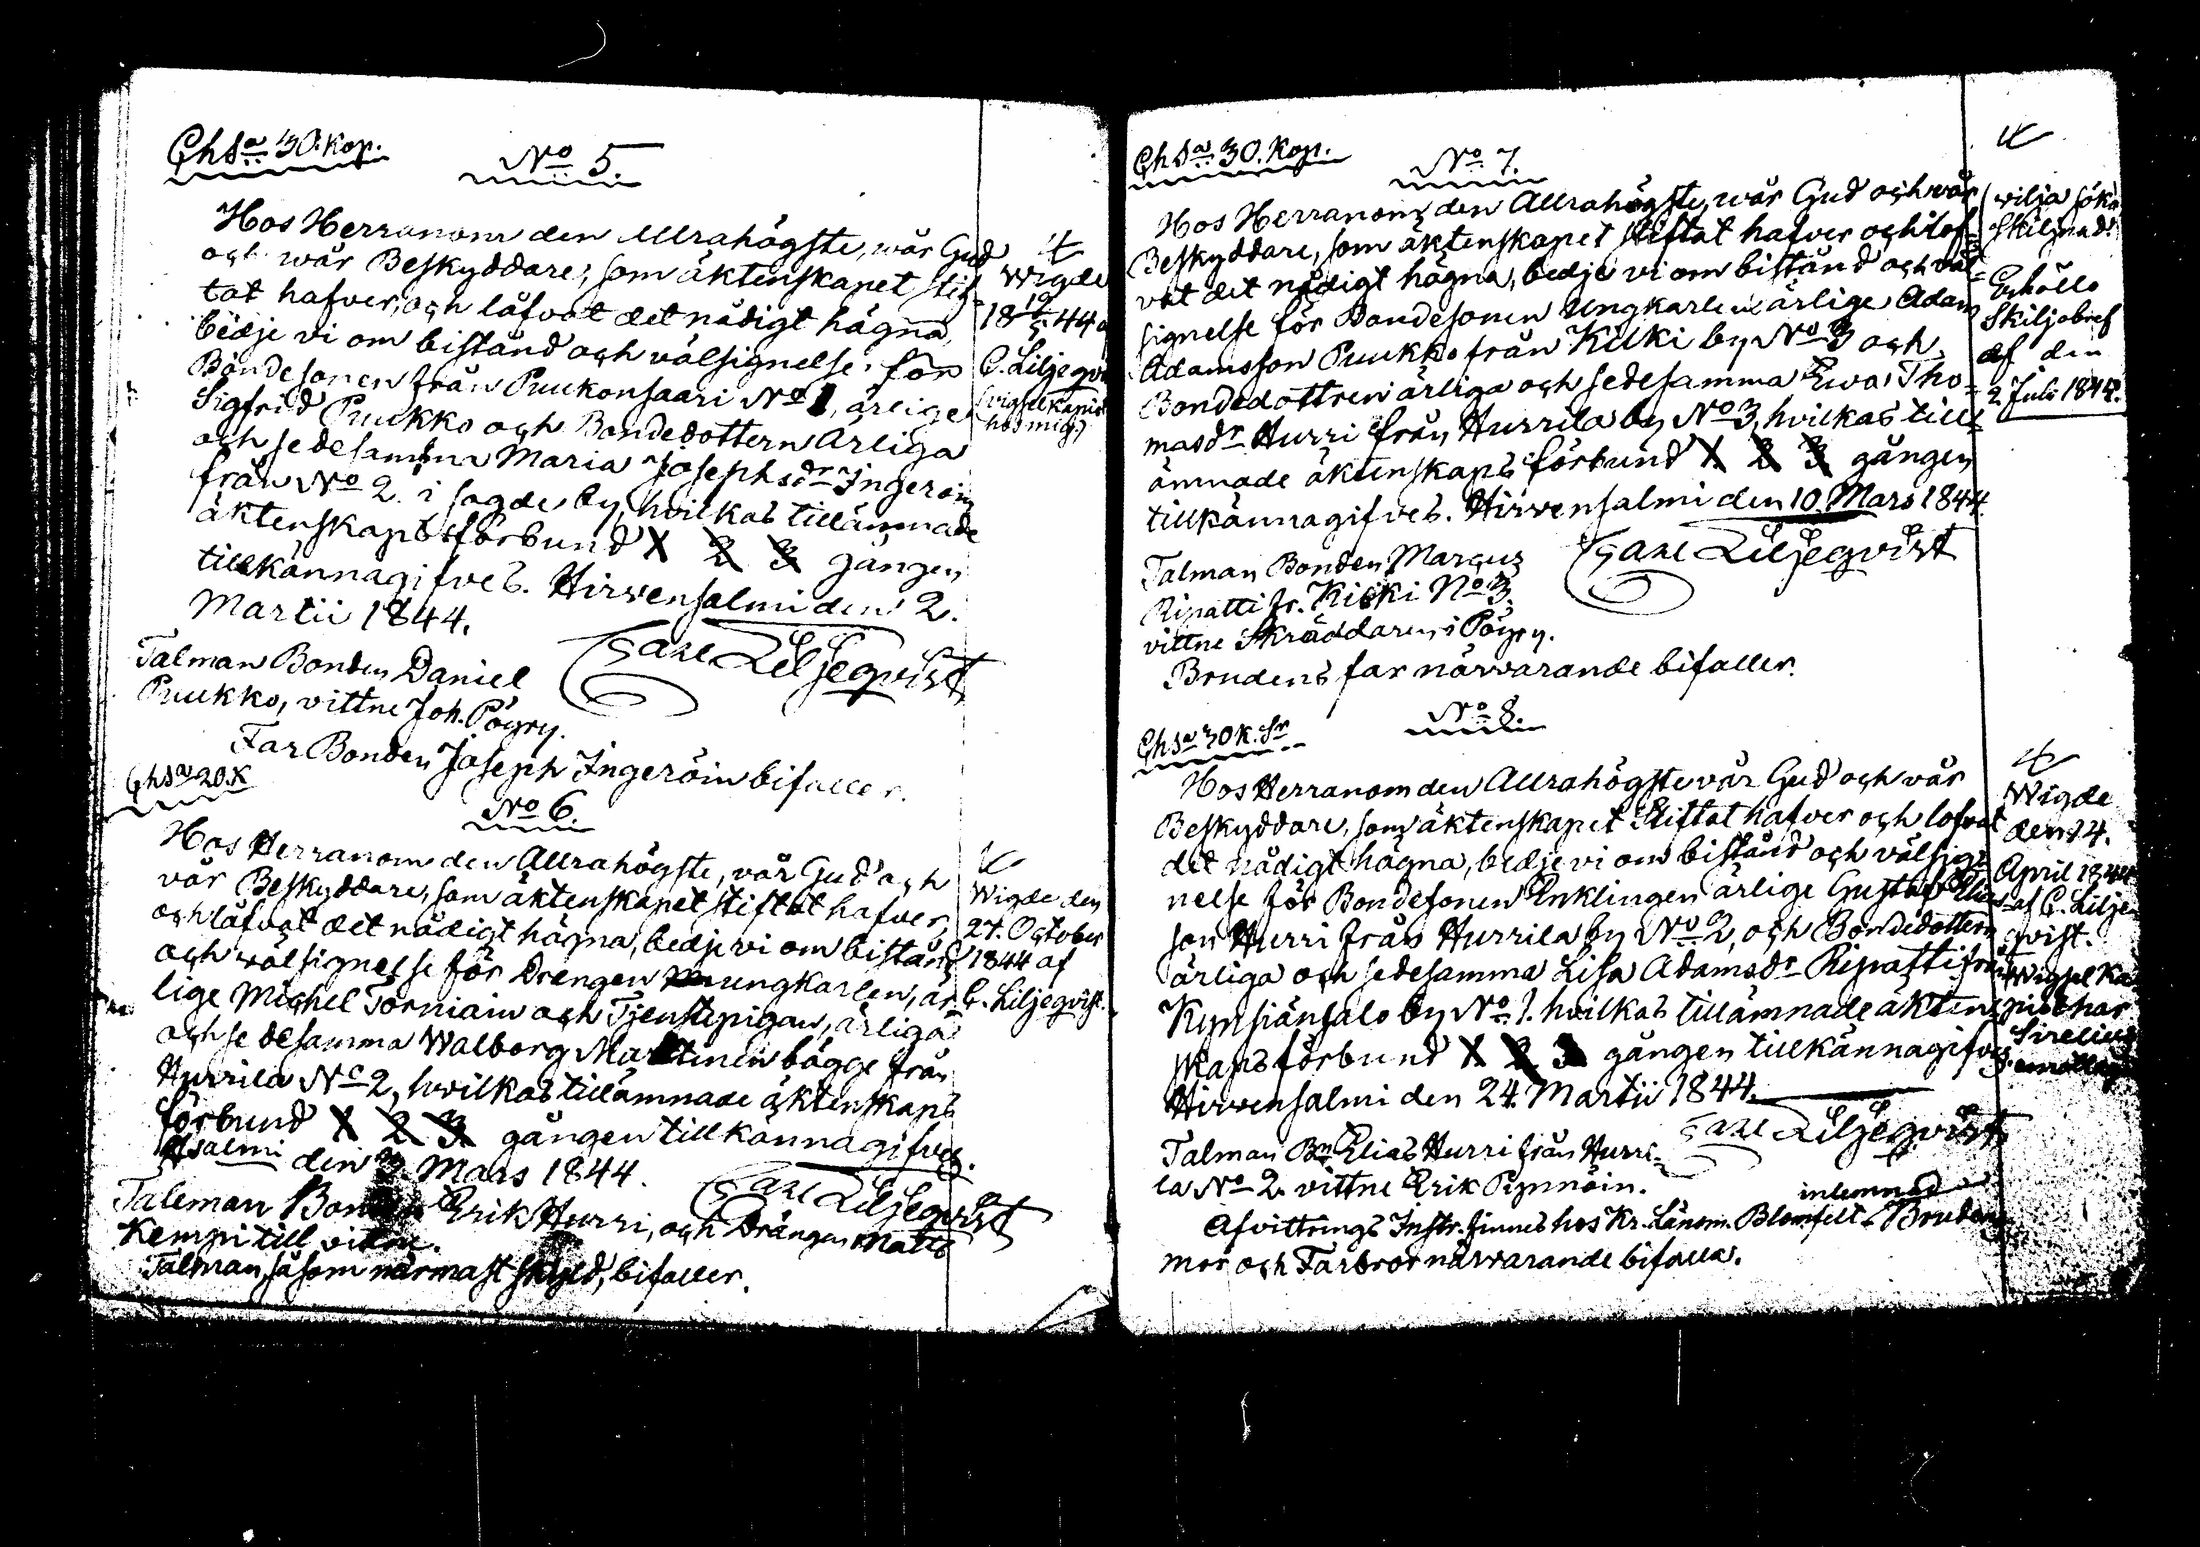 Chsa 30. kop.
No 5.
Hos Herranom den Allrahögste, wår Gud
och wår Beskyddare, som äktenskapet stif-
tat hafver, och låfvat det nådigt hägna,
bedje vi om bistånd och välsignelse för
Bondesonen från Puukonsaari No 1, ärlige
Sigfrid Puukko och Bondedottern ärliga
och sedesamma Maria Josephsdr Ingeröin
från No 2. i sagde by, hvilkas tillämnade
äktenskapsförbund 1 2 3 gången
tillkännagifves. Hirvensalmi den 2.
Martii 1844.
Carl Liljeqvist
Talman Bonden Daniel
Puukko, vittne Joh. Pöyry.
Far Bonden Joseph Ingeröin bifaller.
Wigde
18 19/5 44 a
C. Liljeqvi
(vigselkapit
hos mig)
Chsa 20. K
No 6.
Hos Herranom den Allrahögste, vår Gud och
vår Beskyddare, som äktenskapet stiftat hafver,
och låfvat det nådigt hägna, bedje vi om bistånd
och välsignelse för Drengen ungkarlen, är-
lige Michel Torniain och Tjenstepigan, ärliga
och sedesamma Walborg Marttinen bägge från
Hurrila No 2, hvilkas tillämnade äktenskaps
förbund 1 2 3 gången tillkännagifves.
Hsalmi den 3. Mars 1844.
Carl Liljeqvist
Taleman Bonden Erik Hurri, och Drängen Matts
Kempi till vittne.
Talman, såsom närmast skyld, bifaller.
Wigde den
27. October
1844 af
C. Liljeqvist.
Chsa 30. Kop.
No 7.
Hos Herranom den Allrahögste, wår Gud och wår
Beskyddare, som äktenskapet stiftat hafver och lof-
vat det nådigt hägna, bedje vi om bistånd och väl-
signelse för Bondesonen Ungkarlen ärlige Adam
Adamsson Puukko från Kilki by No 3 och
Bondedottren ärliga och sedesamma Ewa Tho-
masdr Hurri från Hurrila by No 3, hvilkas till-
ämnade äktenskaps förbund 1 2 3 gången
tillkännagifves. Hirvensalmi den 10 Mars 1844.
Carl Liljeqvist
Talman Bonden Marcus
Ripatti fr. Kilki No 3.
vittne Skräddaren Pöyry.
Brudens far närvarande bifaller.
(vilja söka
Skilnad)
Erhöllo
Skiljobref
af den
2 Juli 1844.
Chsa 30 k. Sr
No 8.
Hos Herranom den Allrahögste vår Gud och vår
Beskyddare, som äktenskapet Stiftat hafver och lofvat
det nådigt hägna, bedje vi om bistånd och välsig-
nelse för Bondesonen Enklingen ärlige Gustaf Elias-
son Hurri från Hurrila by No 2, och Bondedottern
ärliga och sedesamma Lisa Adamsdr Ripatti från
Kynsiänsalo by No 1. hvilkas tillämnade äkten-
skapsförbund 1 2 3 gången tillkännagifves
Hirvensalmi den 24. Martii 1844.
Carl Liljeqvist
Talman Bn Elias Hurri från Hurri-
la No 2. vittne Erik Pynnöin.
inlemnad
Afvittrings Instr. finnes hos Kr. Länsm. Blomfelt. Brudens
mor och Farbror närvarande bifalla.
Wigde
den 14.
April 1844
af C. Lilje-
qvist.
Wigsel Ka-
pit har
Sirelius
emottagit